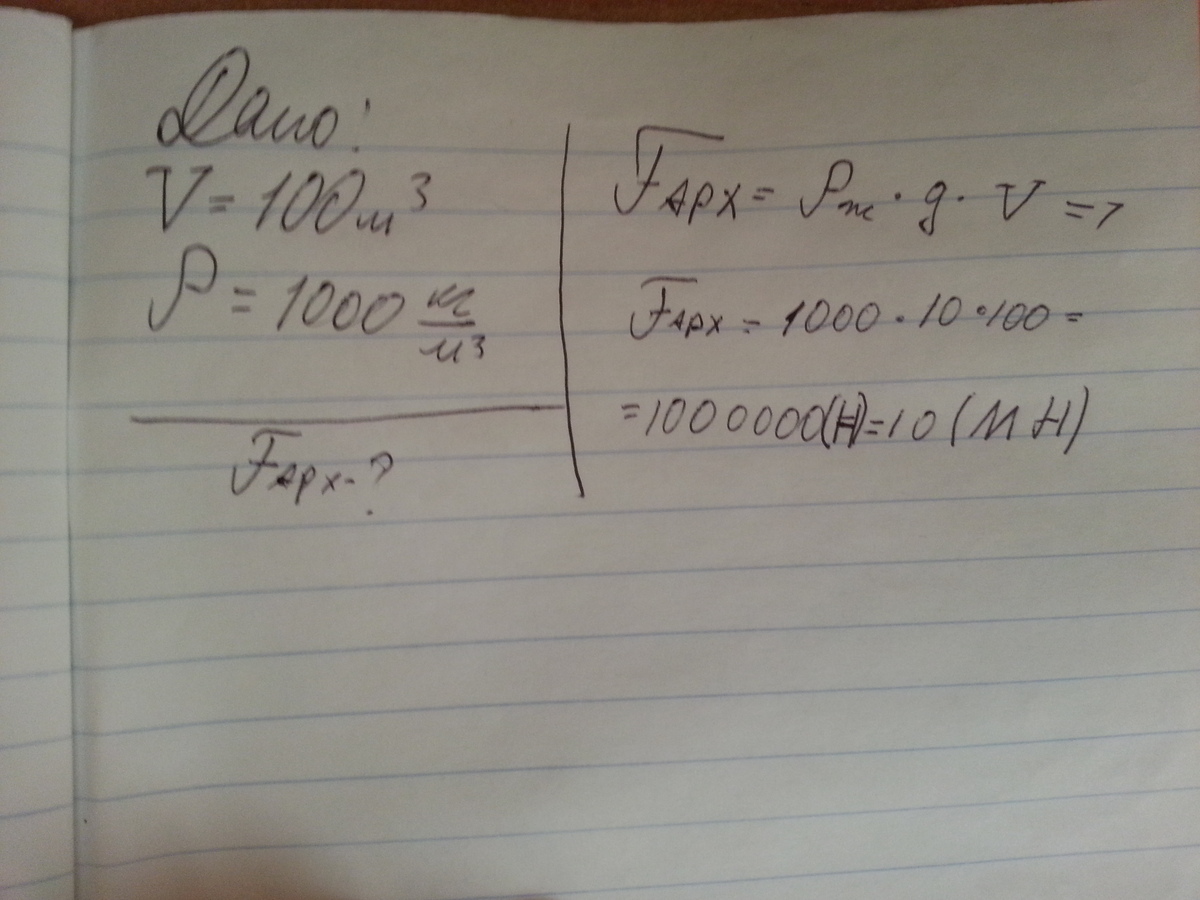 Дано:
V = 100 м³
ρ = 1000 кг/м³
Fарх - ?
Fарх = ρж · g · V =>
Fарх = 1000 · 10 · 100 =
= 1000000(Н) = 10 (МН)